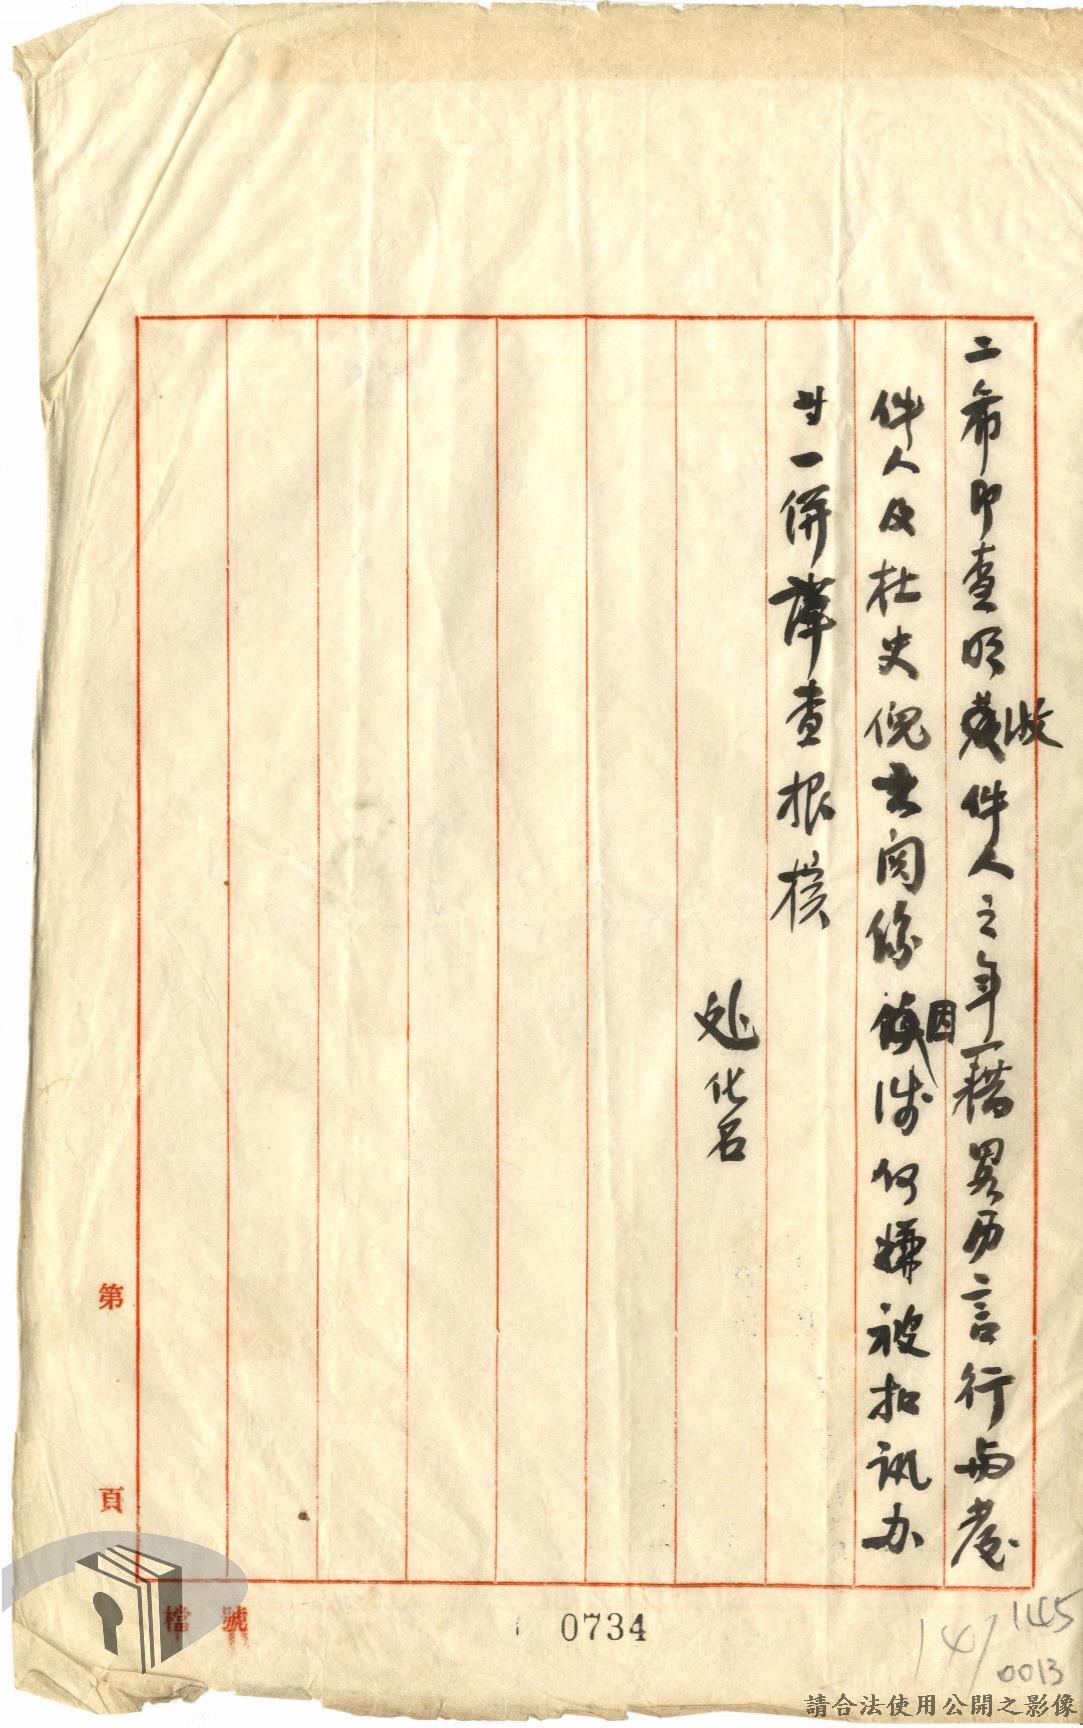 二希即查明收件人之年籍畧历言行與發
件人及杜史倪关関係因涉何嫌被扣訊办
廿一併詳查根樸
处化名
第 頁
檔號
0734
141/145
0013
請合法使用公開之影像